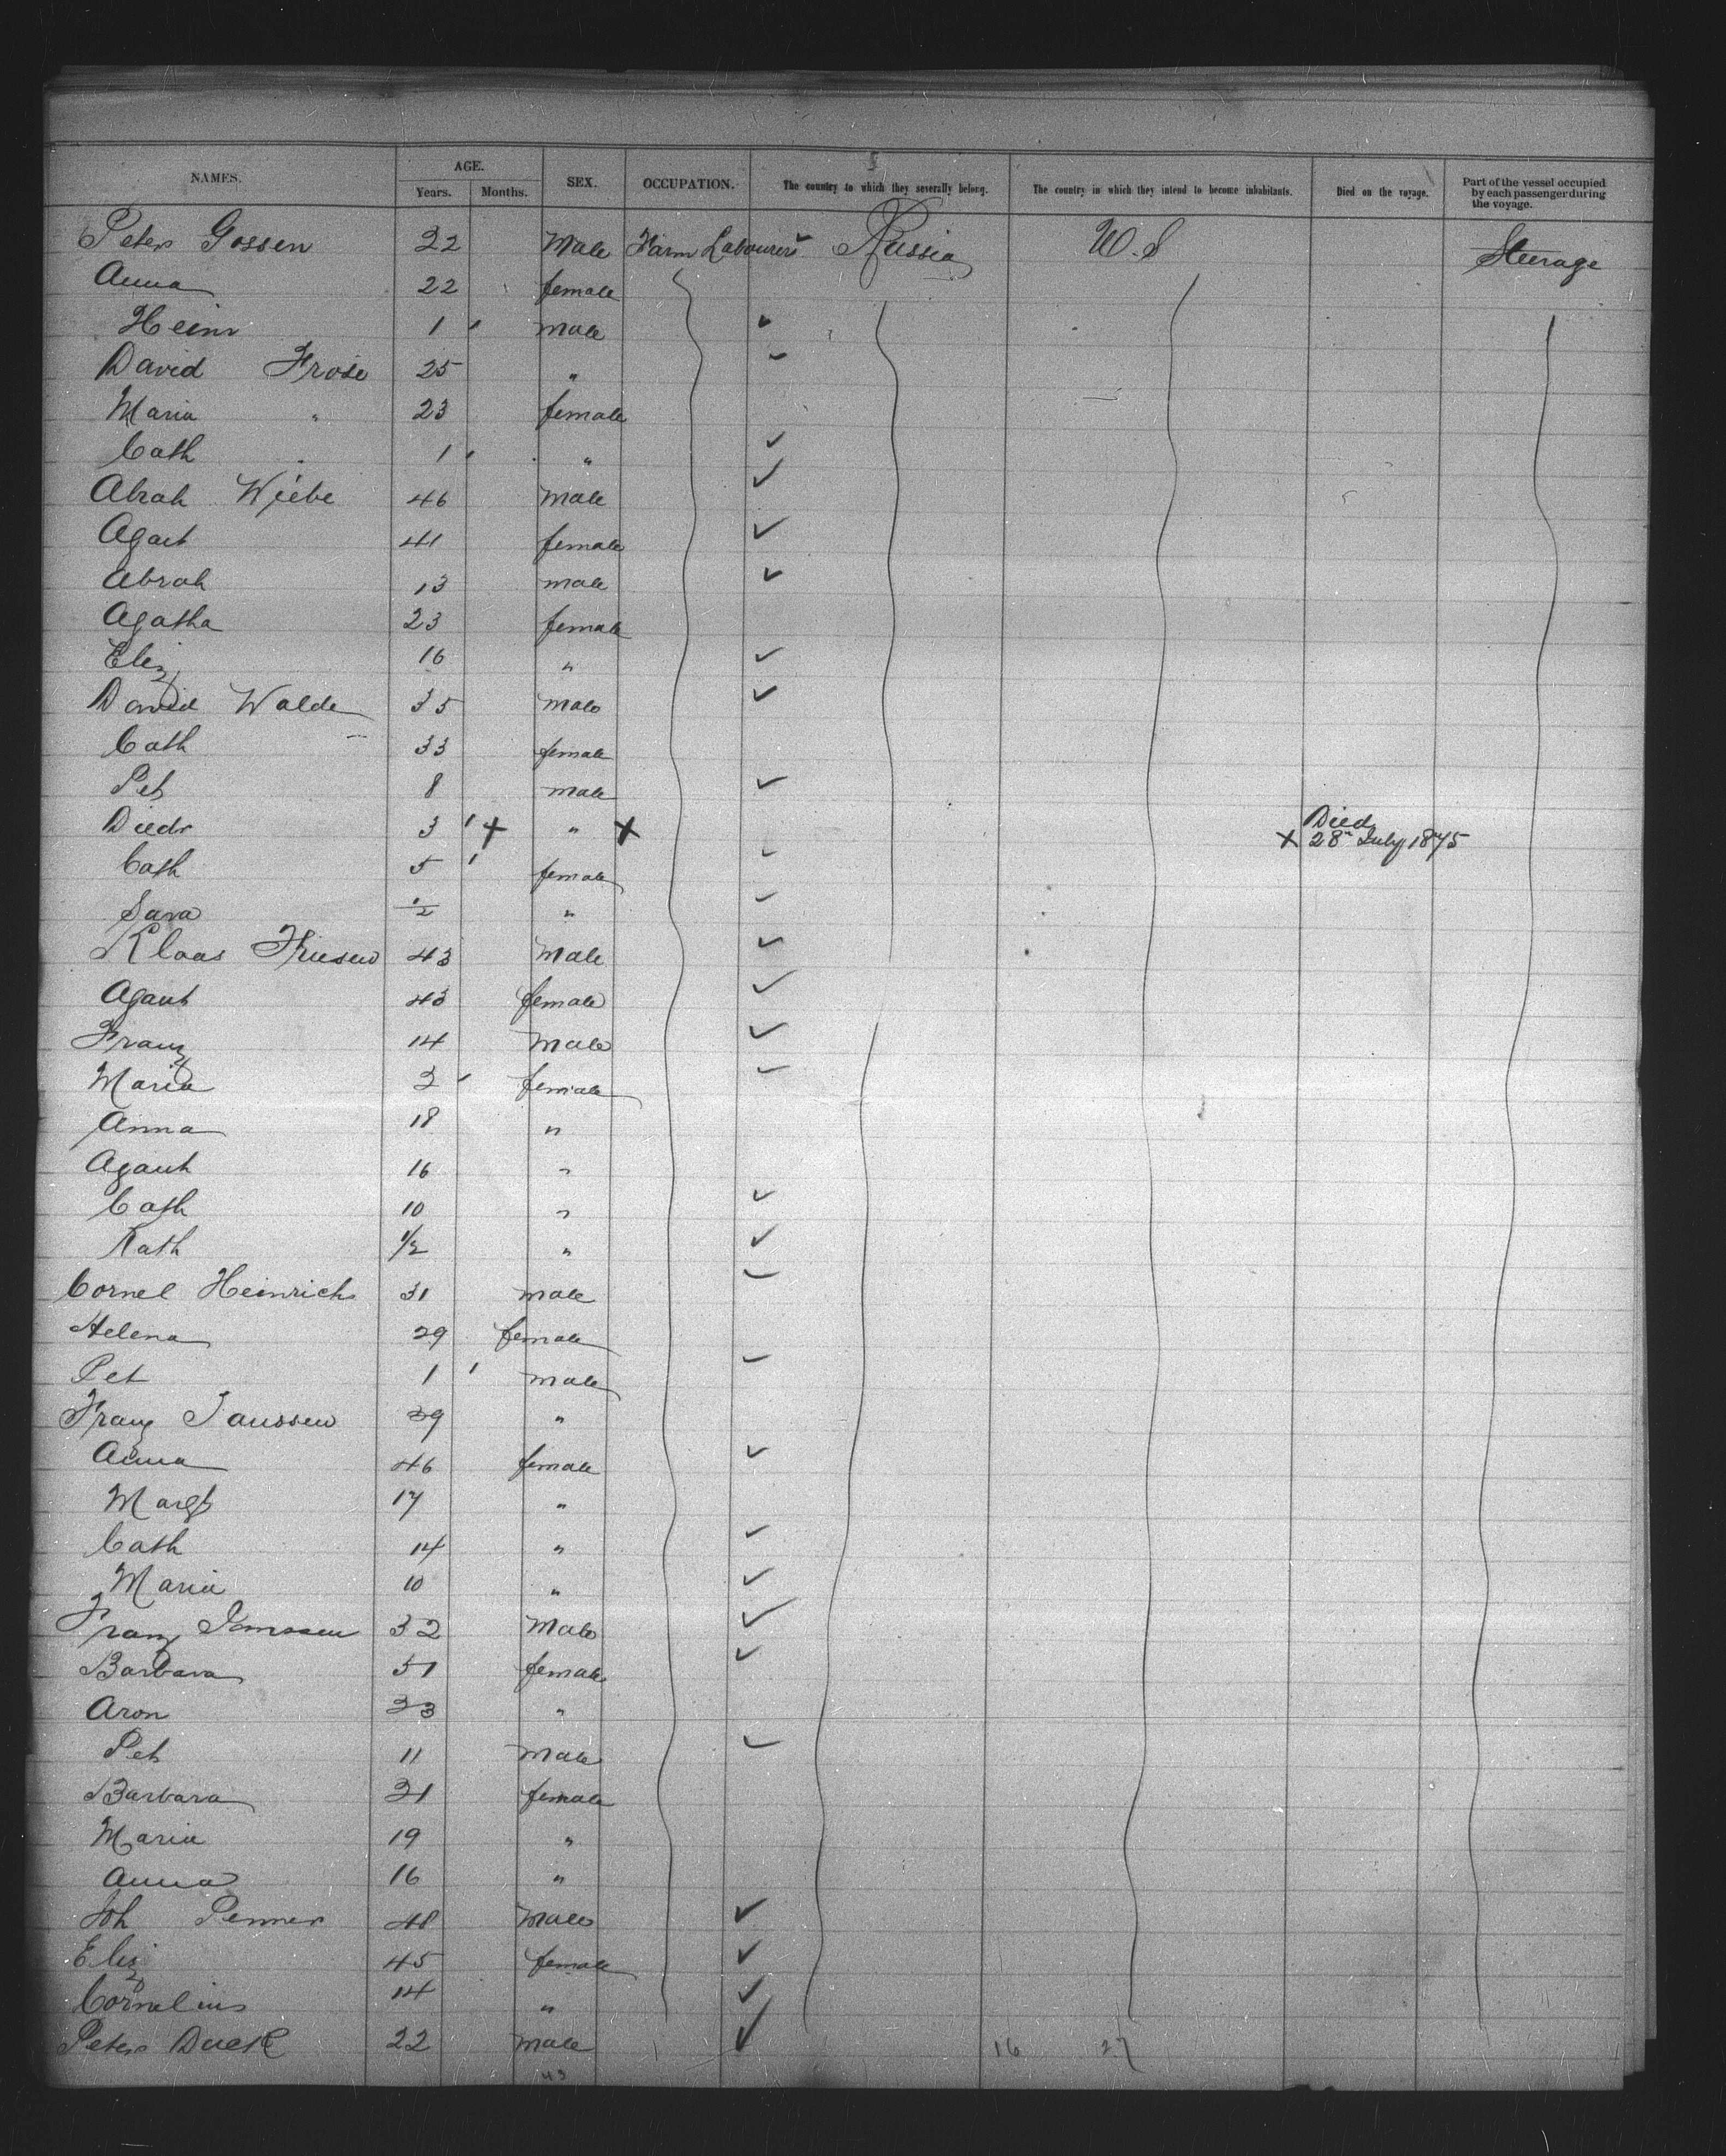 NAMES. AGE. Years. Months. SEX. OCCUPATION. The country to which they severally belong. The country in which they intend to become inhabitants. Died on the voyage. Part of the vessel occupied by each passenger during the voyage.
Peter Gossen 22 Male Farm Labourers Russia U.S Steerage
Anna 22 female
Heinr 1 male
David Frose 25 "
Maria " 23 female
Cath 1 "
Abrah Wiebe 46 male
Agact 41 female
Abrah 13 male
Agatha 23 female
Eliz 16 "
David Walde 35 male
Cath 33 female
Pet 8 male
Diedr 3 X " X X Died 28th July 1875
Cath 5 female
Sara 1/2 "
Klaas Friesen 43 Male
Agant 43 female
Franz 14 Male
Maria 2 female
Anna 18 "
Aganh 16 "
Cath 10 "
Kath 1/2 "
Cornel Heinrichs 31 male
Helena 29 female
Pet 1 male
Franz Janssen 39 "
Anna 46 female
Margt 17 "
Cath 14 "
Maria 10 "
Franz Janssen 52 Male
Barbara 51 female
Aron 23 "
Pet 11 Male
Barbara 21 female
Maria 19 "
Anna 16 "
Joh Penner 48 Male
Eliz 45 female
Cornelius 14 "
Peter Dueck 22 male 16 27
43